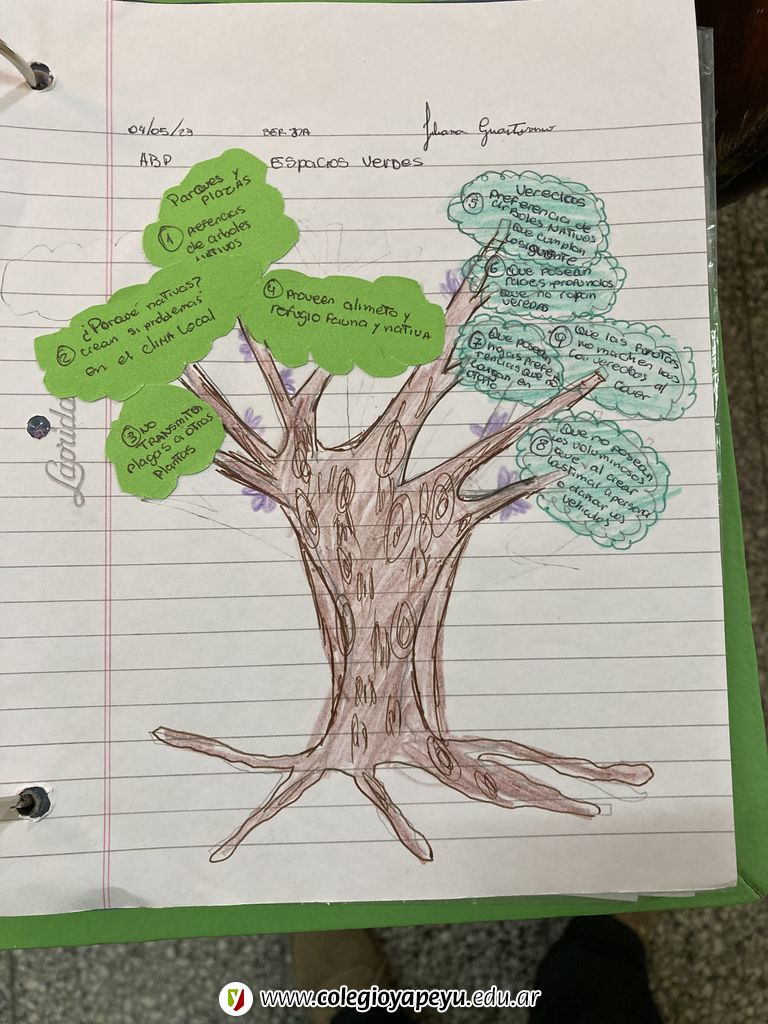 04/05/23
Juliana
ABP
Espacios Verdes
Parques y
plazas
① Referencias
de arboles
nativos
② ¿Porqué nativas?
crean si problemas
en el clima local
③ NO
TRANSMITEN
plagas a otras
plantas
④ Proveen alimeto y
refugio fauna y nativa
⑤ Veredas
Preferencia de
árboles nativos
que cumplan
lo siguiente
⑥ Que posean
raices profundas
que no rompan
veredas
⑦ Que posean
hojas prefe
rencias que no
caigan en
otoño
⑨ Que las frutas
no machen las
veredas al
caer
⑧ Que no posean
los voluminosos
que al crear
lastimar a personas
o dañar los
vehiculos
Laprida
www.colegioyapeyu.edu.ar